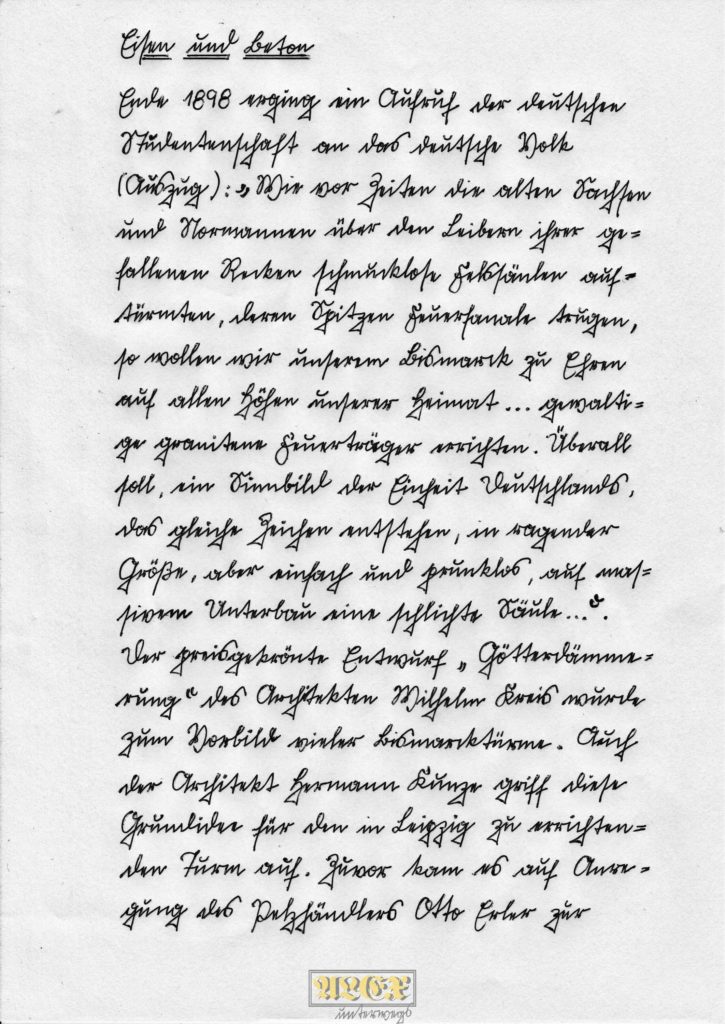 Eisen und Beton
Ende 1898 erging ein Aufruf der deutschen
Studentenschaft an das deutsche Volk
(Auszug): „Wie vor Zeiten die alten Sachsen
und Normannen über den Leibern ihrer ge=
fallenen Recken schmucklose Felssäulen auf=
türmten, deren Spitzen Feuerfanale trugen,
so wollen wir unserem Bismarck zu Ehren
auf allen Höhen unserer Heimat ... gewalti=
ge granitene Feuerträger errichten. Überall
soll, ein Sinnbild der Einheit Deutschlands,
das gleiche Zeichen entstehen, in ragender
Größe, aber einfach und prunklos, auf mas=
sivem Unterbau eine schlichte Säule...“.
Der preisgekrönte Entwurf „Götterdämme=
rung“ des Architekten Wilhelm Kreis wurde
zum Vorbild vieler Bismarcktürme. Auch
der Architekt Hermann Kunze griff diese
Grundidee für den in Leipzig zu errichten=
den Turm auf. Zuvor kam es auf Anre=
gung des Pelzhändlers Otto Erler zur
ALEX
unterwegs